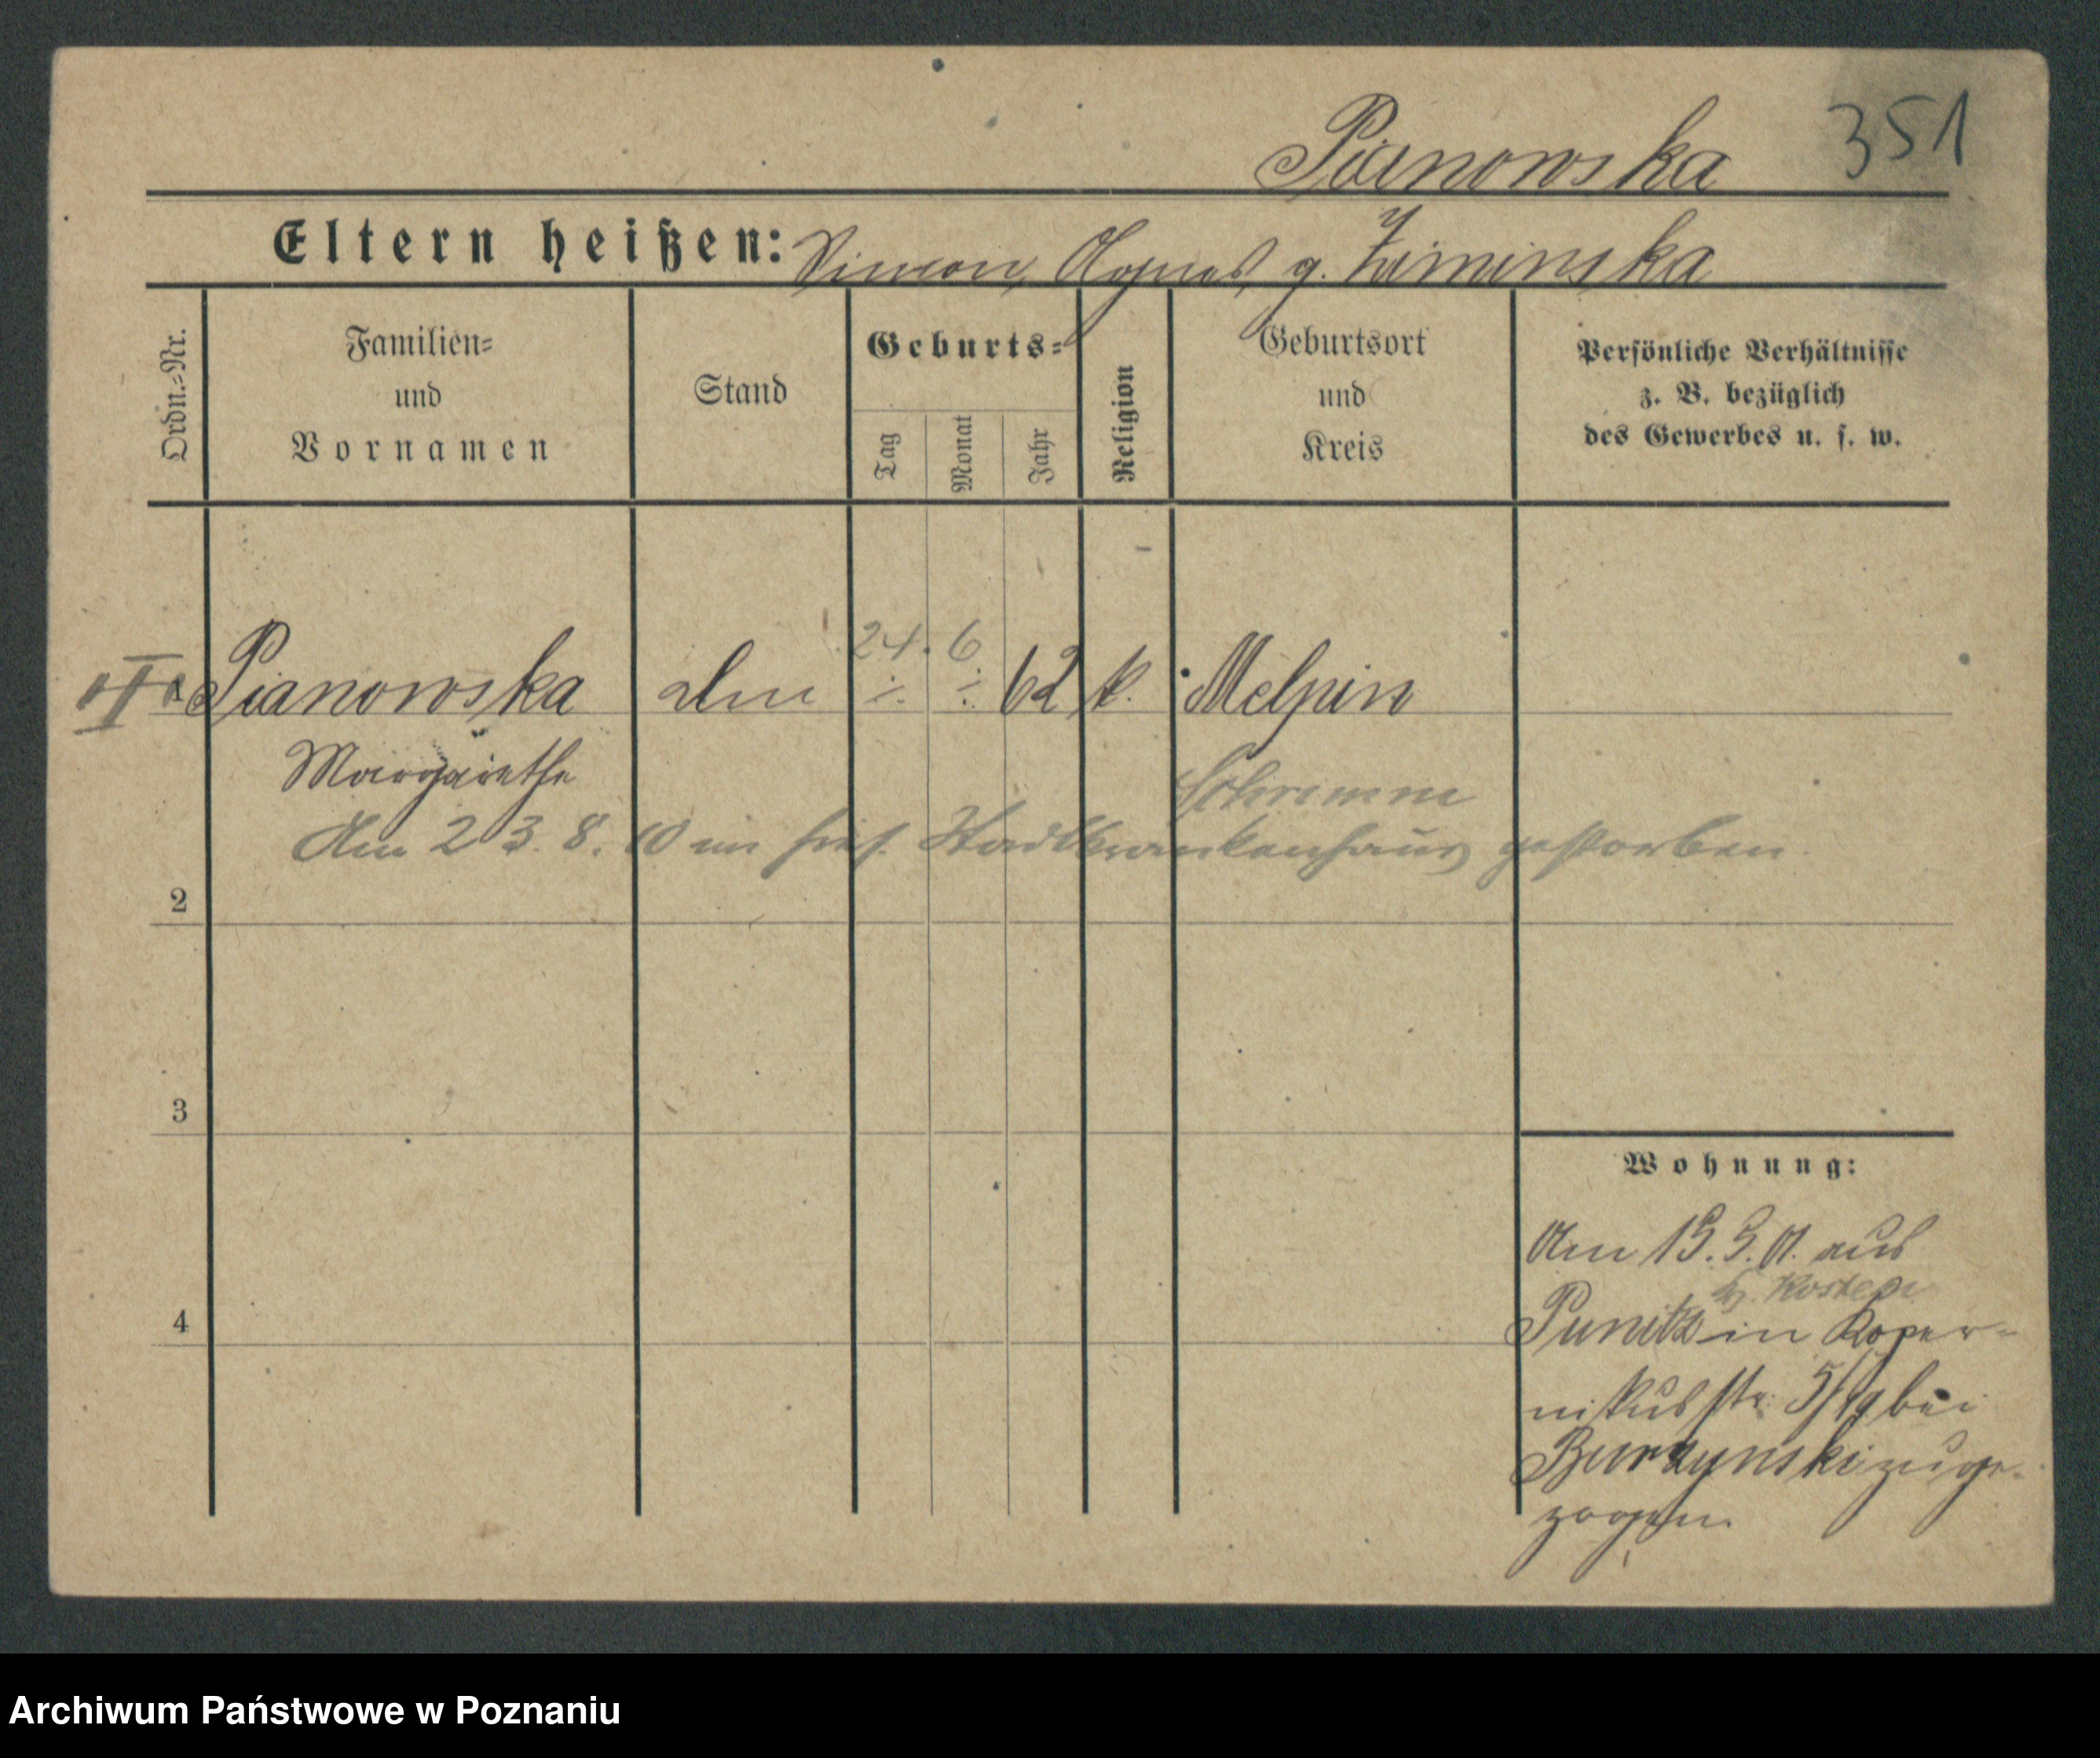 Pianowska 351
Eltern heißen: Simon, Agnes, g. Ziminska
Ordn.=Nr.
Familien=
und
Vornamen
Stand
Geburts=
Tag
Monat
Jahr
Religion
Geburtsort
und
Kreis
Persönliche Verhältnisse
z. B. bezüglich
des Gewerbes u. s. w.
24. 6
Pianowska 62 k. Melpin
Margarethe
Schrimm
Am 23. 8. 10 im hies. Stadtkrankenhaus gestorben.
2
3
4
Wohnung:
Am 15. 5. 01. aus
Kosten
Punitz in Koper-
nikusstr. 5/ bei
Burzynski zuge-
zogen.
Archiwum Państwowe w Poznaniu